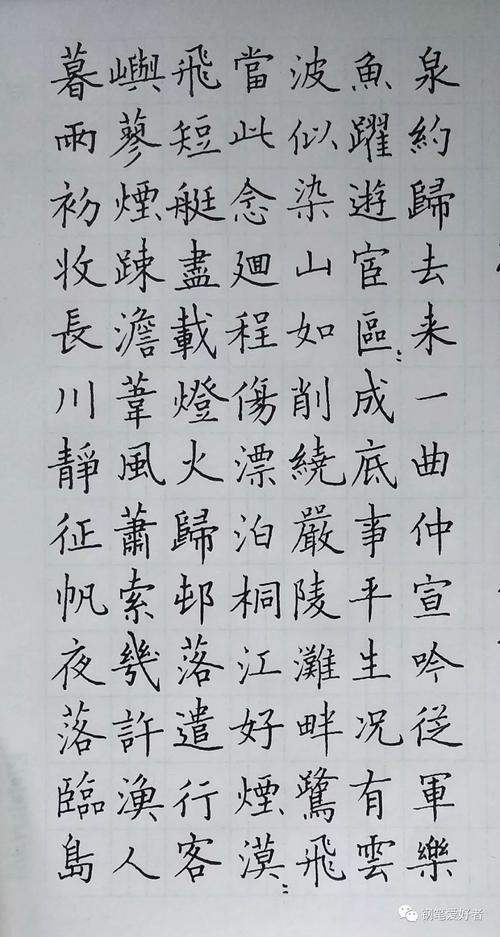 暮雨初收長川靜征帆夜落臨島
嶼蓼煙踈澹葦風蕭索幾許漁人
飛短艇盡載燈火歸邨落遣行客
當此念廻程傷漂泊桐江好煙漠〻
波似染山如削繞嚴陵灘畔鷺飛
魚躍遊宦區〻成底事平生况有雲
泉約歸去来一曲仲宣吟従軍樂
钢笔爱好者